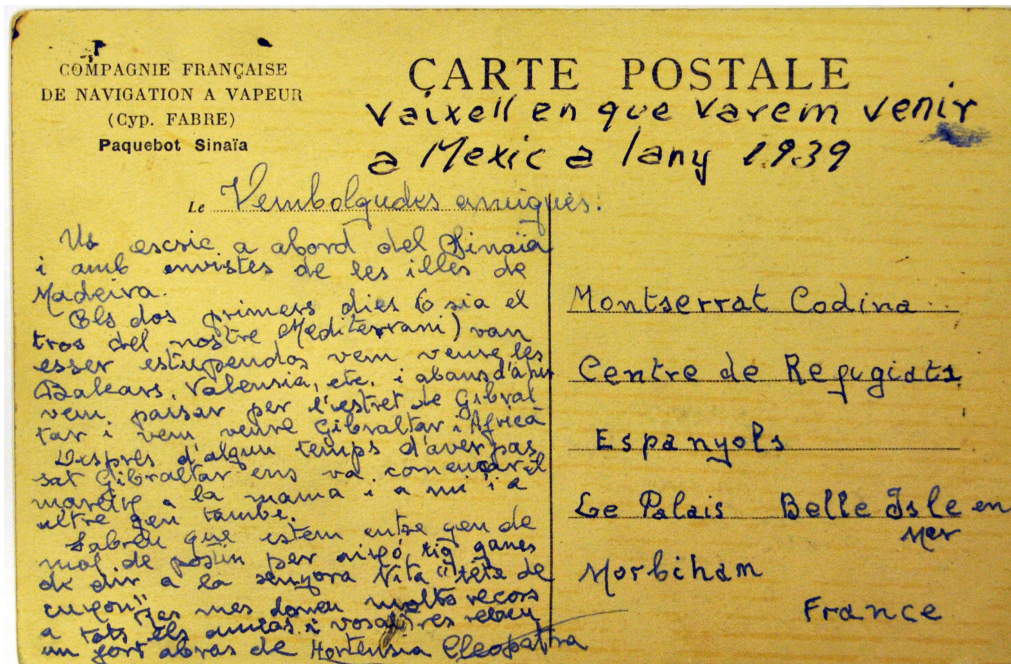 COMPAGNIE FRANÇAISE
DE NAVIGATION A VAPEUR
(Cyp. FABRE)
Paquebot Sinaïa
CARTE POSTALE
Vaixell en que varem venir
a Mexic a lany 1939
Le Vembolgudes amigues:
Us escric a abord del Sinaïa
i amb envistes de les illes de
Madeira.
Els dos primers dies (o sia el
tros del nostre Mediterrani) van
esser estupendos vem veure les
Balears, Valensia, etc. i abans d'ahir
vem passar per l'estret de Gibral
tar i vem veure Gibraltar i Africa
Despres d'algun temps d'aver pas
sat Gibraltar ens va començar el
mareig a la mama i a mi i a
altre gen tambe.
Sabreu que estem entre gen de
mal de per aixó tig ganes
de dir a la senyora Vita "tète de
Res mes doneu molts recors
a tots els amics i vosaltres rebeu
un fort abras de Hortensia Cleopatra
Montserrat Codina
Centre de Refugiats
Espanyols
Le Palais Belle Isle en
Mer
Morbiham
France